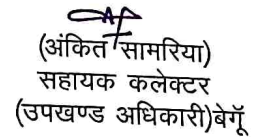 (अंकित सामरिया)
सहायक कलेक्टर
(उपखण्ड अधिकारी)बेगूँ